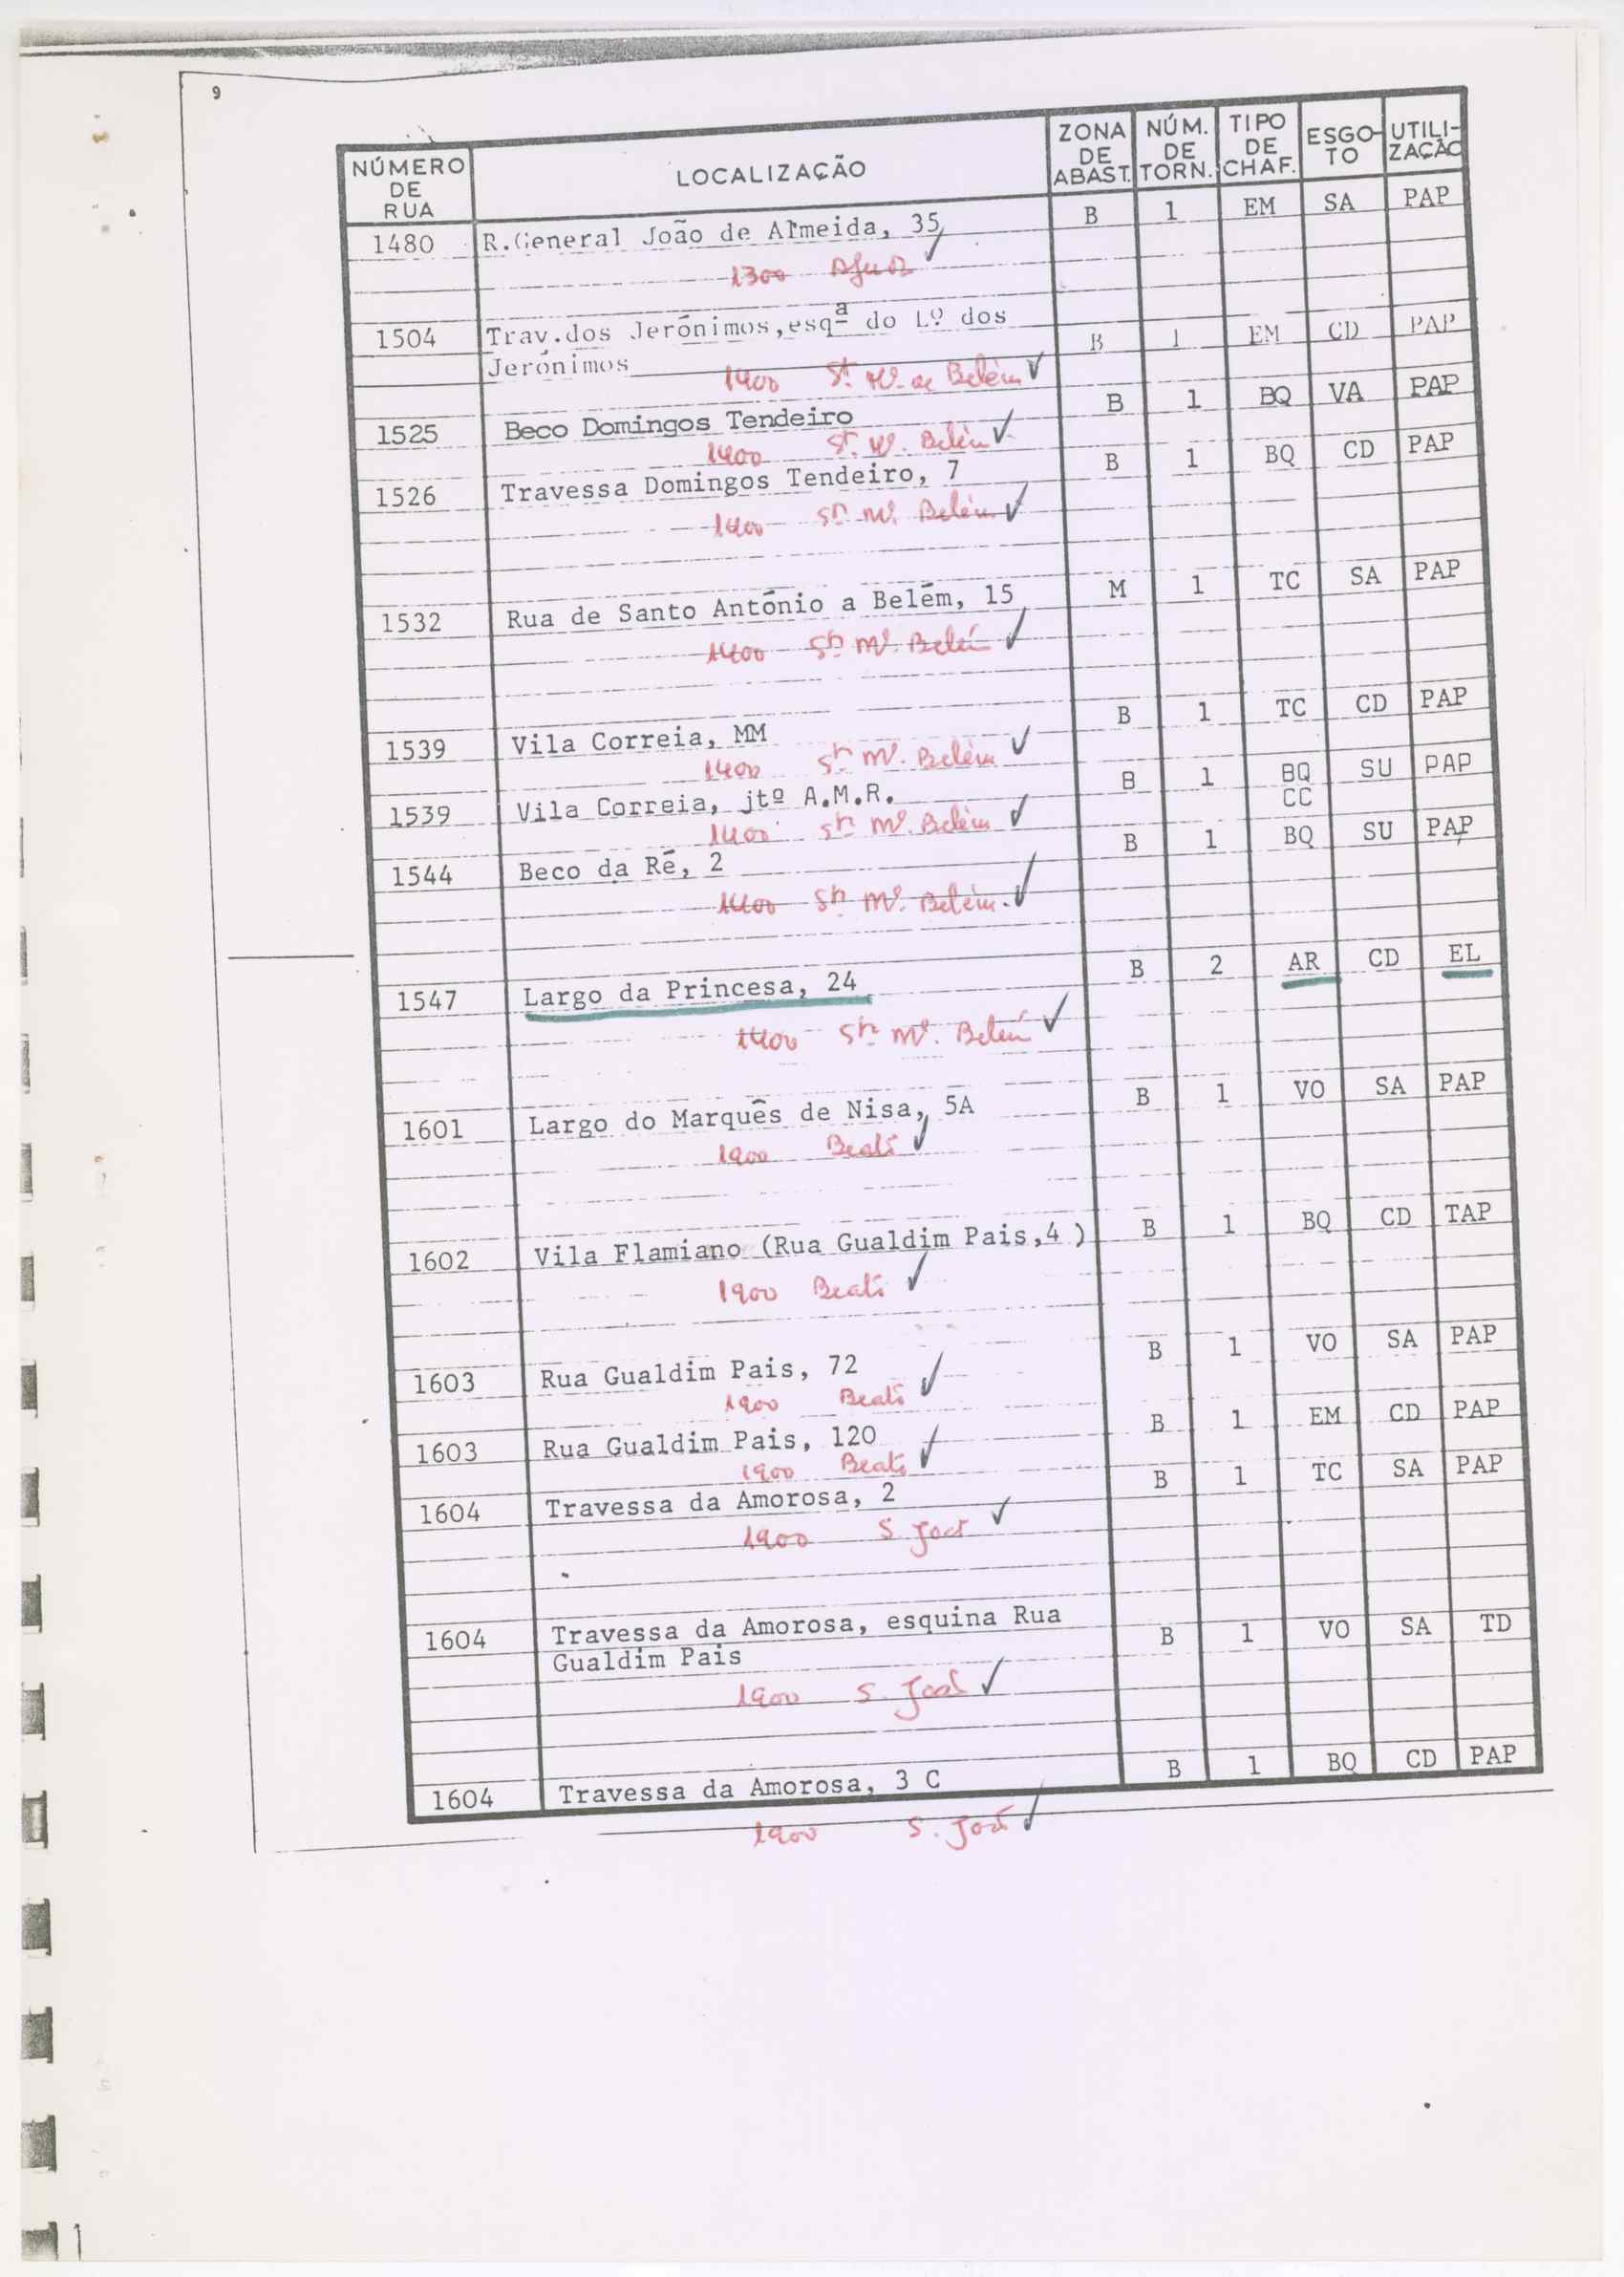 9
NÚMERO DE RUA LOCALIZAÇÃO ZONA DE ABAST. NÚM. DE TORN. TIPO DE CHAF. ESGO-TO UTILI-ZAÇÃO
1480 R.General João de Almeida, 35 B 1 EM SA PAP
1300 Ajuda
1504 Trav.dos Jerónimos,esqª do Lº dos
Jerónimos B 1 EM CD PAP
1400 Stª Mª de Belém ✓
1525 Beco Domingos Tendeiro B 1 BQ VA PAP
1400 Stª Mª. Belém ✓
1526 Travessa Domingos Tendeiro, 7 B 1 BQ CD PAP
1400 Stª Mª. Belém ✓
1532 Rua de Santo António a Belém, 15 M 1 TC SA PAP
1400 Stª Mª. Belém ✓
1539 Vila Correia, MM B 1 TC CD PAP
1400 Stª Mª. Belém ✓
1539 Vila Correia, jtº A.M.R. B 1 BQ SU PAP
CC
1400 Stª Mª. Belém ✓
1544 Beco da Ré, 2 B 1 BQ SU PAP
1400 Stª Mª. Belém. ✓
1547 Largo da Princesa, 24 B 2 AR CD EL
1400 Stª Mª. Belém ✓
1601 Largo do Marquês de Nisa, 5A B 1 VO SA PAP
1900 Beato ✓
1602 Vila Flamiano (Rua Gualdim Pais,4 ) B 1 BQ CD TAP
1900 Beato ✓
1603 Rua Gualdim Pais, 72 B 1 VO SA PAP
1900 Beato ✓
1603 Rua Gualdim Pais, 120 B 1 EM CD PAP
1900 Beato ✓
1604 Travessa da Amorosa, 2 B 1 TC SA PAP
1900 S. João ✓
1604 Travessa da Amorosa, esquina Rua
Gualdim Pais B 1 VO SA TD
1900 S. João ✓
1604 Travessa da Amorosa, 3 C B 1 BQ CD PAP
1900 S. João ✓